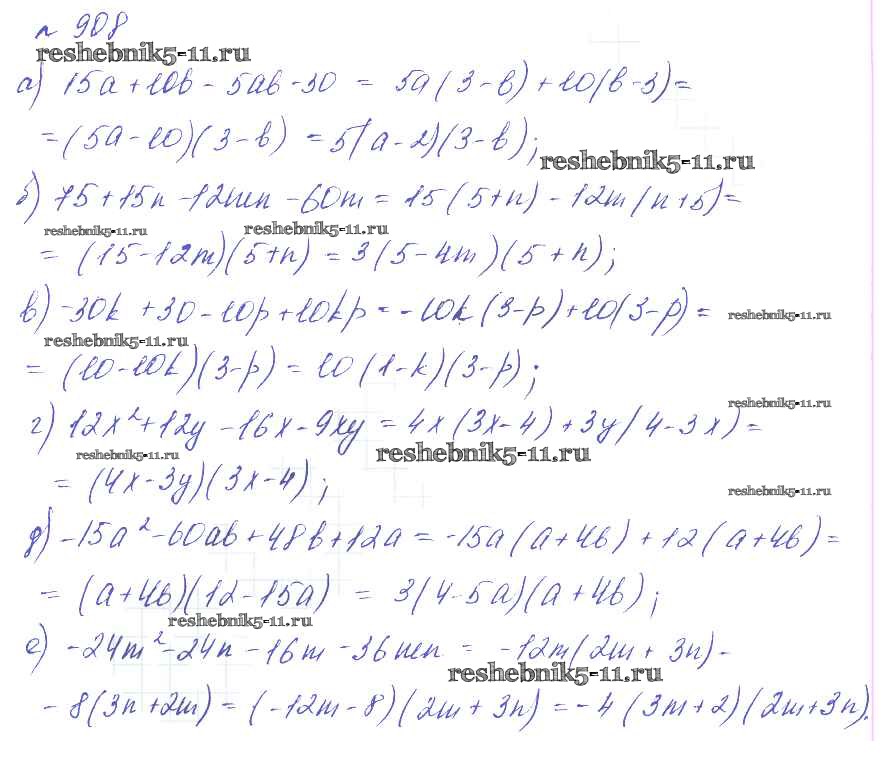 № 908
reshebnik5-11.ru
а) 15a + 10b - 5ab - 30 = 5a(3 - b) + 10(b - 3) =
= (5a - 10)(3 - b) = 5(a - 2)(3 - b);
reshebnik5-11.ru
б) 75 + 15n - 12mn - 60m = 15(5 + n) - 12m(n + 5) =
reshebnik5-11.ru reshebnik5-11.ru
= (15 - 12m)(5 + n) = 3(5 - 4m)(5 + n);
в) -30k + 30 - 10p + 10kp = -10k(3 - p) + 10(3 - p) =
reshebnik5-11.ru
reshebnik5-11.ru
= (10 - 10k)(3 - p) = 10(1 - k)(3 - p);
reshebnik5-11.ru
г) 12x² + 12y - 16x - 9xy = 4x(3x - 4) + 3y(4 - 3x) =
reshebnik5-11.ru reshebnik5-11.ru
= (4x - 3y)(3x - 4);
reshebnik5-11.ru
д) -15a² - 60ab + 48b + 12a = -15a(a + 4b) + 12(a + 4b) =
= (a + 4b)(12 - 15a) = 3(4 - 5a)(a + 4b);
reshebnik5-11.ru
е) -24m² - 24n - 16m - 36mn = -12m(2m + 3n) -
reshebnik5-11.ru
- 8(3n + 2m) = (-12m - 8)(2m + 3n) = -4(3m + 2)(2m + 3n).